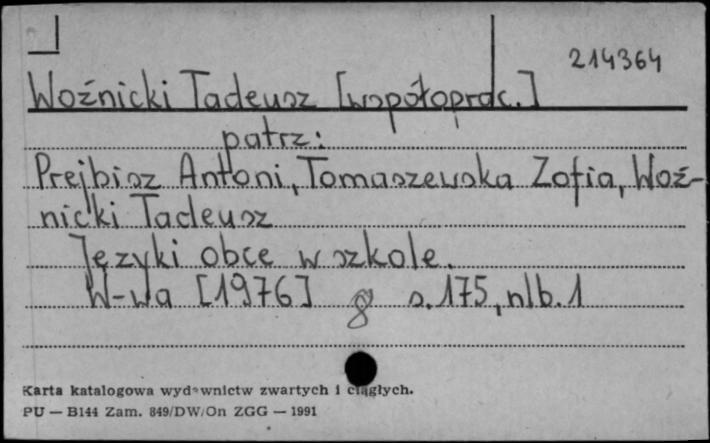 214364
Woźnicki Tadeusz [współoprac.]
patrz:
Prejbisz Antoni, Tomaszewska Zofia, Woź-
nicki Tadeusz
Języki obce w szkole.
W-wa [1976] 8 s. 175, nlb. 1
Karta katalogowa wydawnictw zwartych i ciągłych.
PU — B144 Zam. 849/DW/On ZGG — 1991